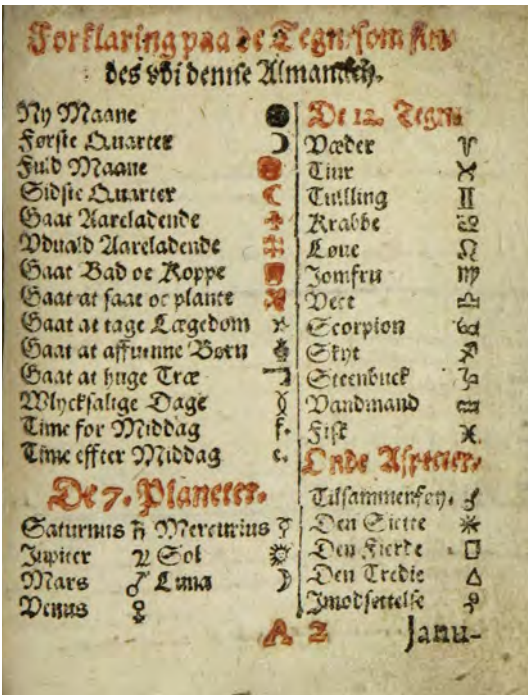 Forklaring paa de Tegn som fin-
des vdi denne Almanach.
Ny Maane
Første Quarter ☽
Fuld Maane
Sidste Quarter ☾
Gaat Aareladende
Vduald Aareladende
Gaat Bad oc Koppe
Gaat at saat oc plante
Gaat at tage Lægedom
Gaat at affuinne Børn
Gaat at huge Træ
Vlycksalige Dage
Time for Middag f.
Time effter Middag e.
De 7. Planeter.
Saturnus ♄ Mercurius ☿
Jupiter ♃ Sol
Mars ♂ Luna ☽
Venus ♀
De 12. Tegn.
Væder ♈
Tiur ♉
Tuilling ♊
Krabbe ♋
Løue ♌
Jomfru ♍
Vect ♎
Scorpion ♏
Skyt ♐
Steenbuck ♑
Vandmand ♒
Fisk ♓
Onde Aspecter.
Tilsammenføy. ☌
Den Siette ⚹
Den Fierde □
Den Tredie △
Jmodsettelse ☍
A 2 Janu-